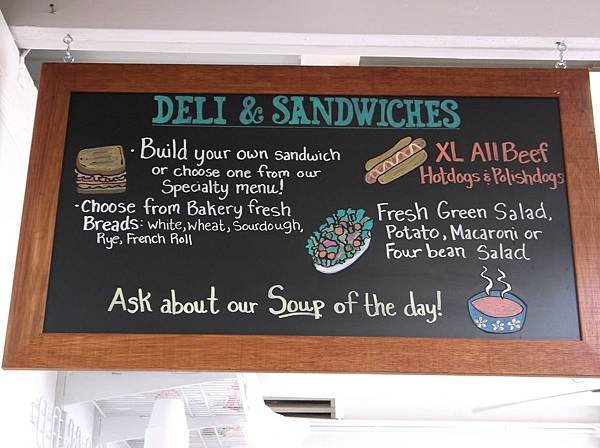 DELI & SANDWICHES
· Build your own sandwich
or choose one from our
Specialty menu!
· Choose from Bakery fresh
Breads: white, wheat, Sourdough,
Rye, French Roll
XL All Beef
Hotdogs & Polishdogs
Fresh Green Salad,
Potato, Macaroni or
Four bean Salad
Ask about our Soup of the day!